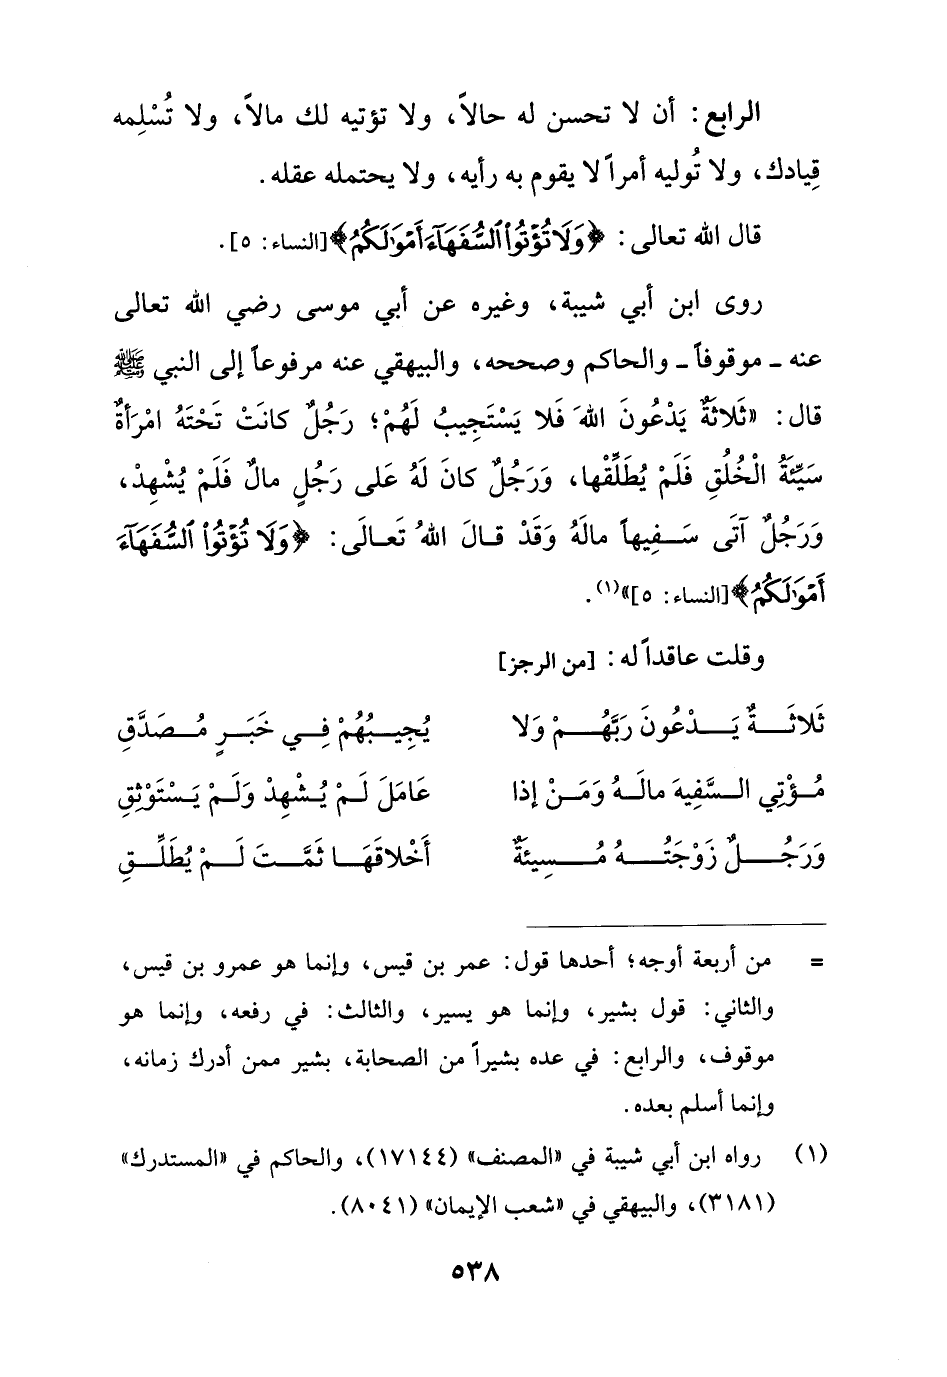 الرابع: أن لا تحسن له حالاً، ولا تؤتيه لك مالاً، ولا تُسْلِمه
قِيادك، ولا تُوليه أمراً لا يقوم به رأيه، ولا يحتمله عقله.
قال الله تعالى: ﴿وَلَا تُؤْتُوا۟ ٱلسُّفَهَآءَ أَمْوَٰلَكُمُ﴾[النساء: ٥].
روى ابن أبي شيبة، وغيره عن أبي موسى رضي الله تعالى
عنه ـ موقوفاً ـ والحاكم وصححه، والبيهقي عنه مرفوعاً إلى النبي ﷺ
قال: «ثَلاثَةٌ يَدْعُونَ اللهَ فَلا يَسْتَجِيبُ لَهُمْ؛ رَجُلٌ كانَتْ تَحْتَهُ امْرَأَةٌ
سَيِّئَةُ الْخُلُقِ فَلَمْ يُطَلِّقْها، وَرَجُلٌ كانَ لَهُ عَلى رَجُلٍ مالٌ فَلَمْ يُشْهِدْ،
وَرَجُلٌ آتَى سَفِيهاً مالَهُ وَقَدْ قالَ اللهُ تَعالَى: ﴿وَلَا تُؤْتُوا۟ ٱلسُّفَهَآءَ
أَمْوَٰلَكُمُ﴾[النساء: ٥]»(١).
وقلت عاقداً له: [من الرجز]
ثَلاثَةٌ يَدْعُونَ رَبَّهُمْ وَلا يُجِيبُهُمْ فِي خَبَرٍ مُصَدَّقِ
مُؤْتِي السَّفِيهَ مالَهُ وَمَنْ إذا عَامَلَ لَمْ يُشْهِدْ وَلَمْ يَسْتَوْثِقِ
وَرَجُلٌ زَوْجَتُهُ مُسِيئَةٌ أَخْلاقَهَا ثَمَّتَ لَمْ يُطَلِّقِ
= من أربعة أوجه؛ أحدها قول: عمر بن قيس، وإنما هو عمرو بن قيس،
والثاني: قول بشير، وإنما هو يسير، والثالث: في رفعه، وإنما هو
موقوف، والرابع: في عده بشيراً من الصحابة، بشير ممن أدرك زمانه،
وإنما أسلم بعده.
(١) رواه ابن أبي شيبة في «المصنف» (١٧١٤٤)، والحاكم في «المستدرك»
(٣١٨١)، والبيهقي في «شعب الإيمان» (٨٠٤١).
٥٣٨